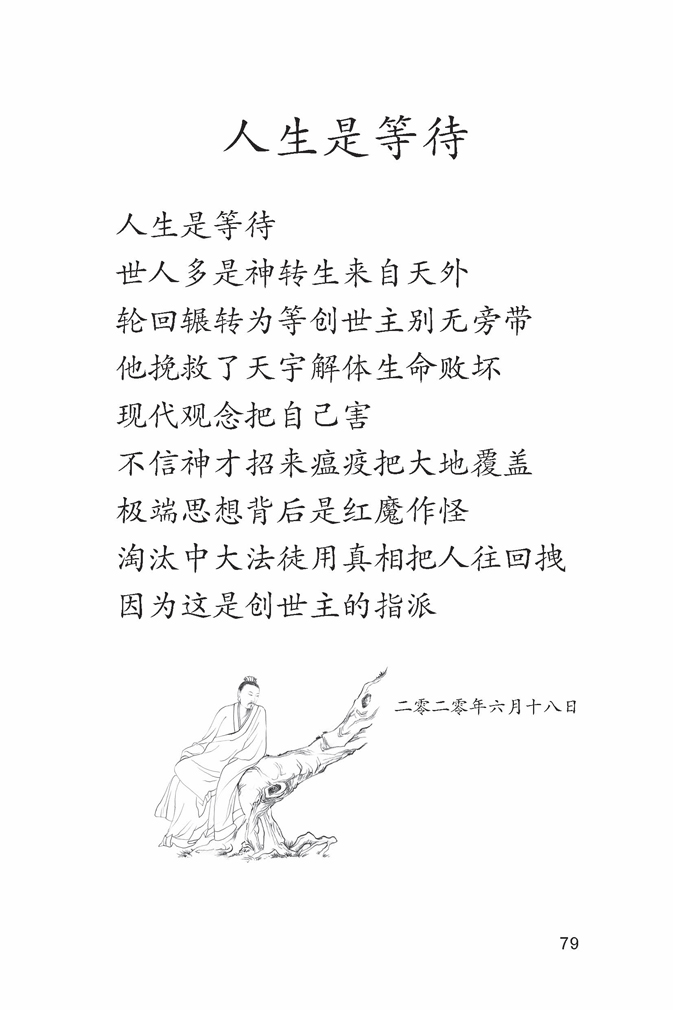 人生是等待
人生是等待
世人多是神转生来自天外
轮回辗转为等创世主别无旁带
他挽救了天宇解体生命败坏
现代观念把自己害
不信神才招来瘟疫把大地覆盖
极端思想背后是红魔作怪
淘汰中大法徒用真相把人往回拽
因为这是创世主的指派
二零二零年六月十八日
79